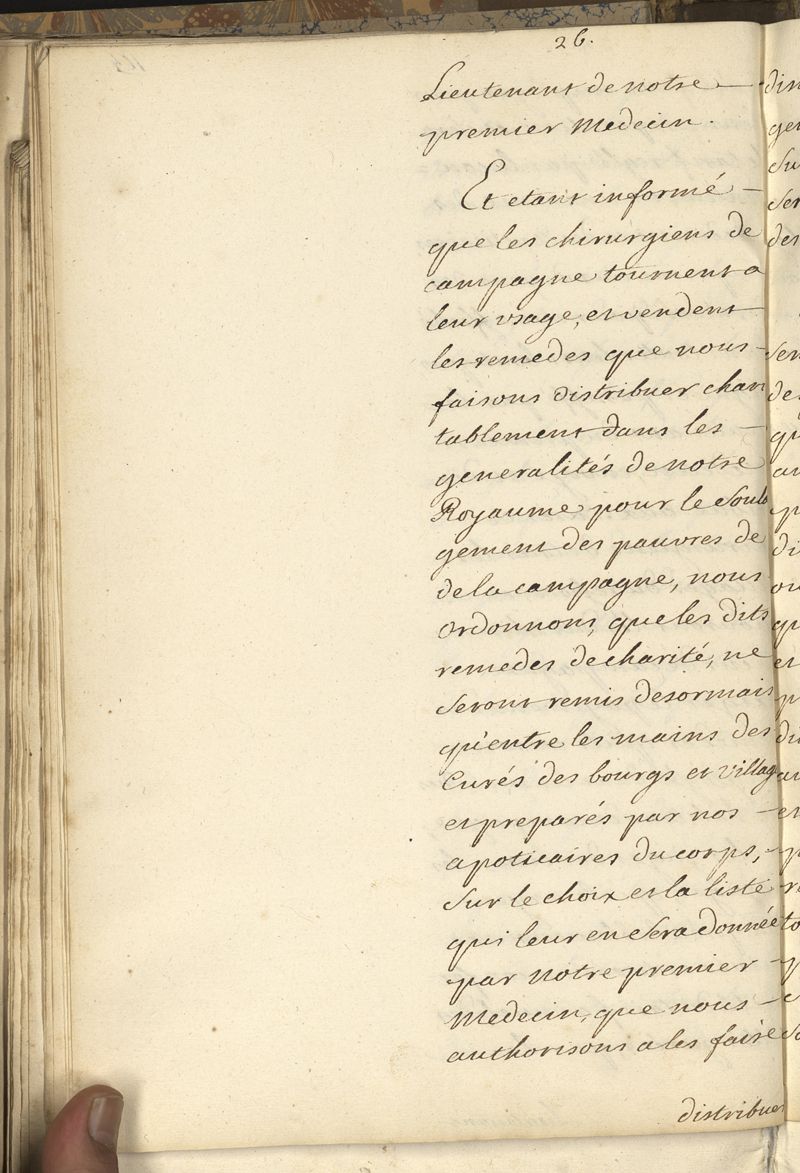 26.
Lieutenant de notre
premier Medecin.
Et etant informé
que les chirurgiens de
campagne tournent a
leur usage, et vendent
les remedes que nous
faisons distribuer chari
tablement dans les
generalités de notre
Royaume pour le Soula
gement des pauvres de
de la campagne, nous
ordonnons, que les dits
remedes de charité, ne
seront remis desormais
qu'entre les mains des
Curés des bourgs et villag
et preparés par nos
apoticaires du corps,
Sur le choix et la liste
qui leur en Sera donnée
par notre premier
Medecin, que nous
authorisons a les faire
distribuer